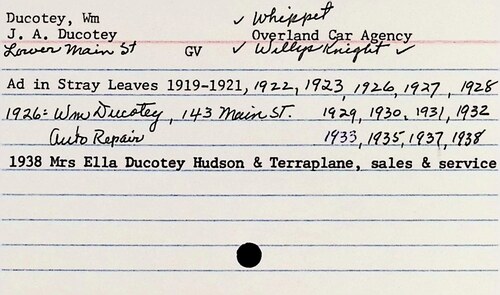 Ducotey, Wm ✓ Whippet
J. A. Ducotey Overland Car Agency
Lower Main St GV ✓ Willys Knight ✓
Ad in Stray Leaves 1919-1921, 1922, 1923, 1926, 1927, 1928
1926: Wm Ducotey, 143 Main St. 1929, 1930, 1931, 1932
Auto Repair 1933, 1935, 1937, 1938
1938 Mrs Ella Ducotey Hudson & Terraplane, sales & service